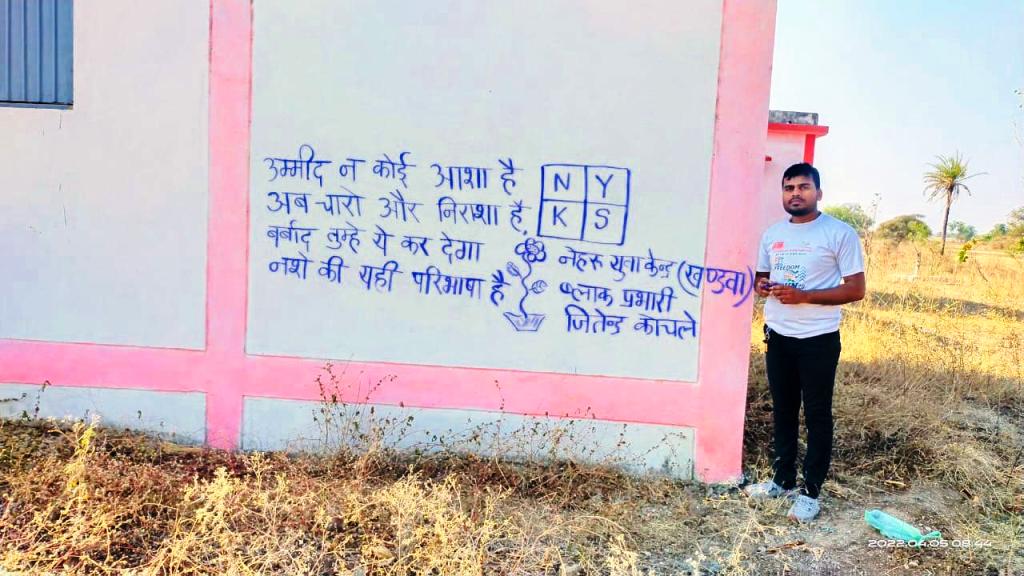 उम्मीद न कोई आशा है
अब चारो और निराशा है,
बर्बाद तुम्हे ये कर देगा
नशे की यही परिभाषा है
N Y
K S
नेहरू युवा केन्द्र (खण्डवा)
ब्लाक प्रभारी
जितेन्द्र कोचले
FREEDOM
2022.04.05 08:44